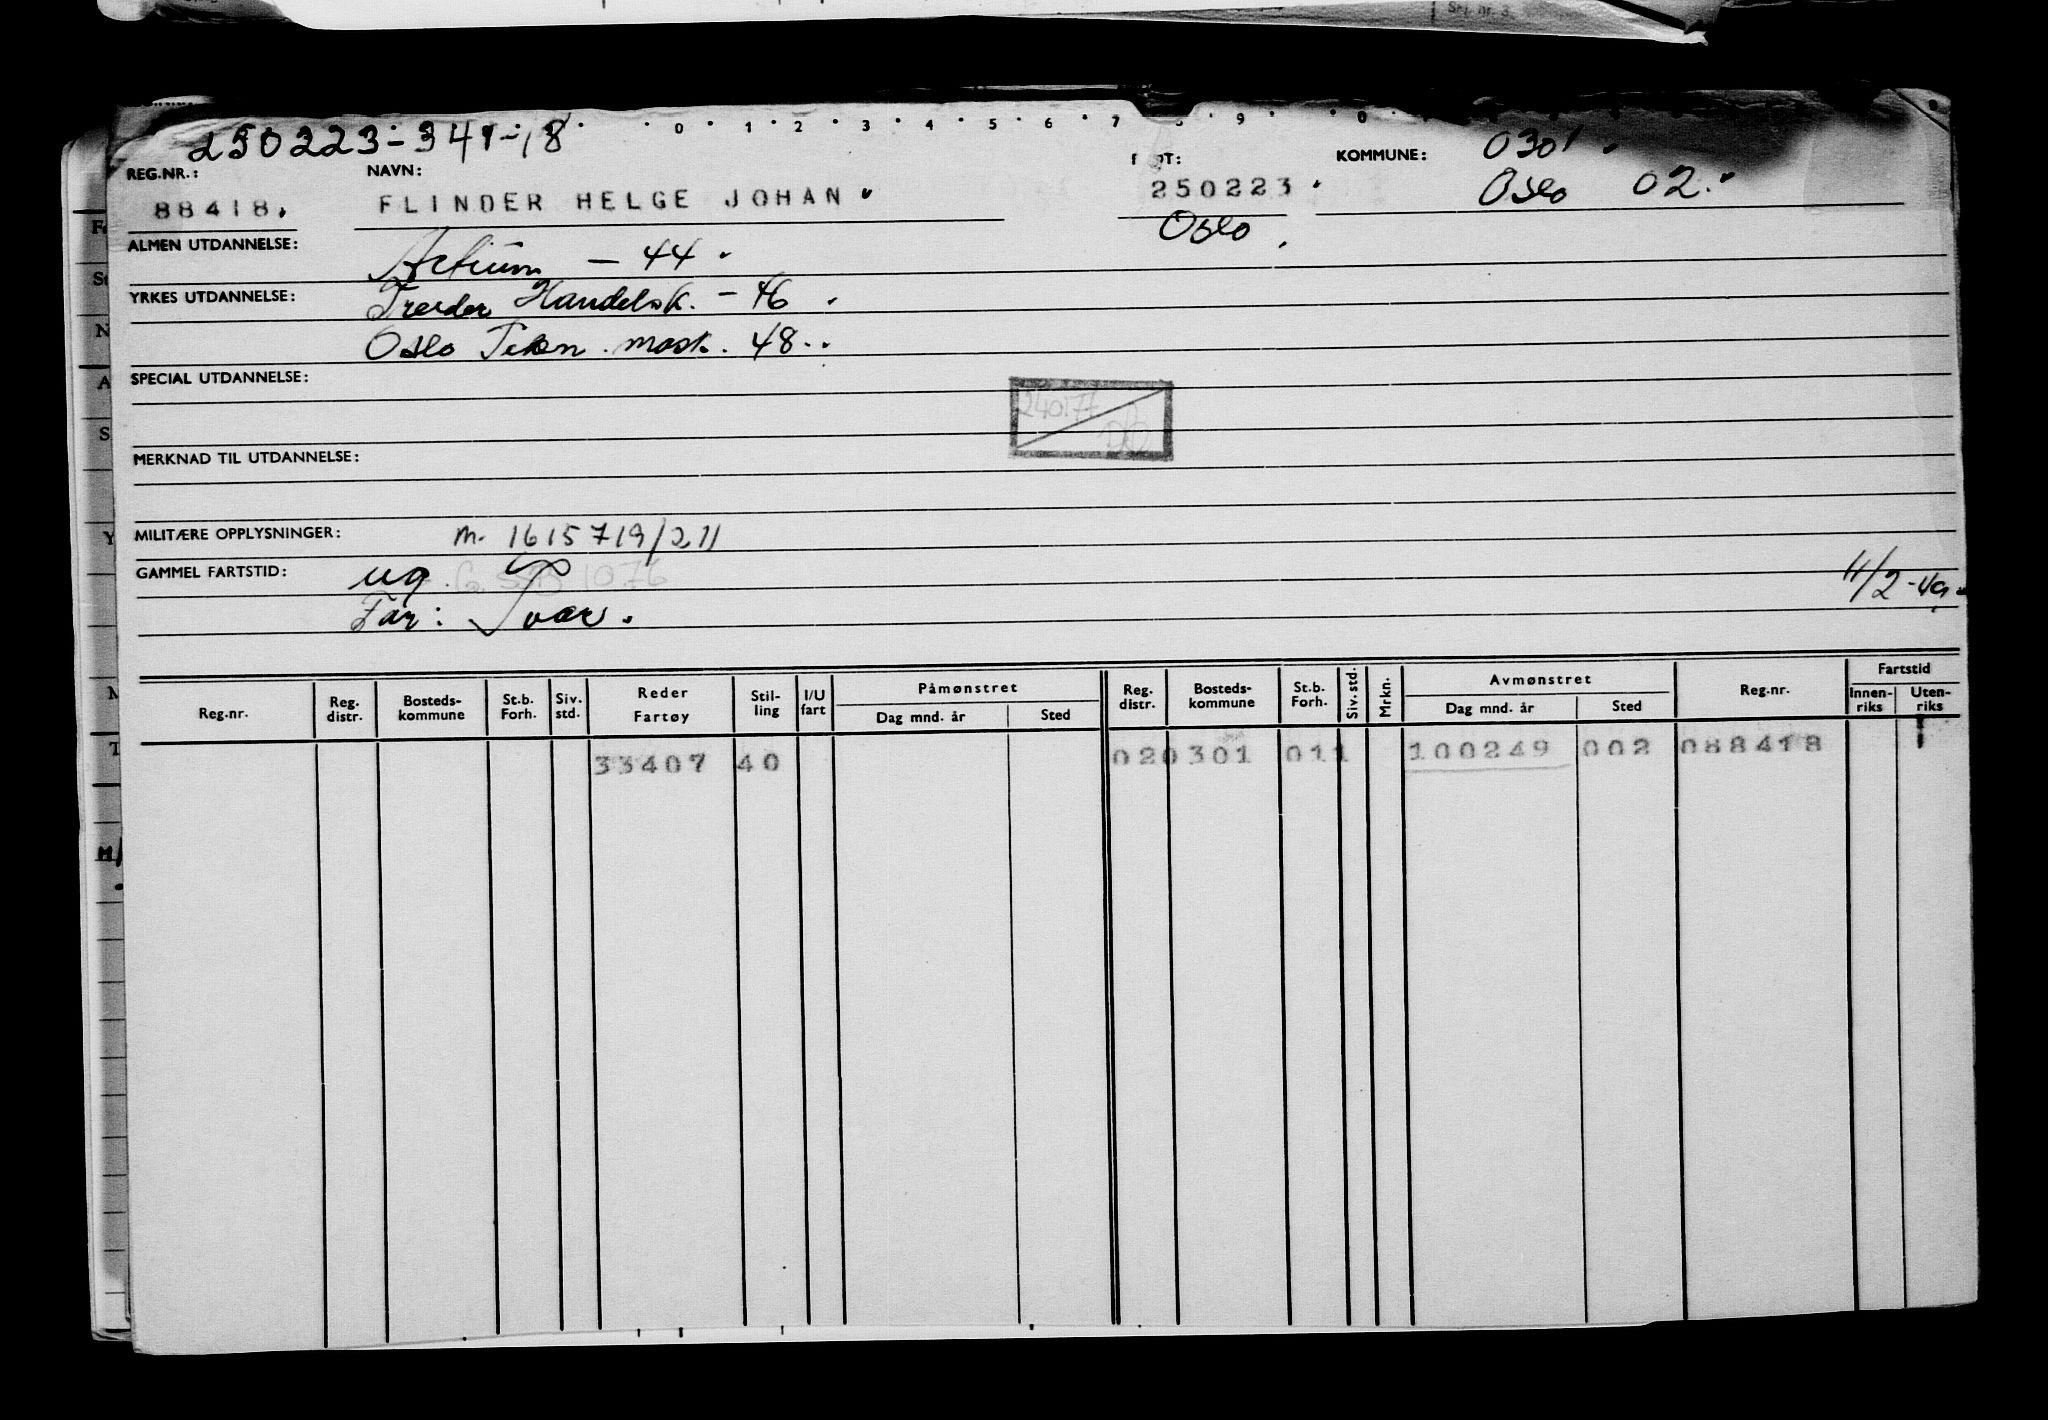 Srj. nr. 3
0 1 2 3 4 5 6 7 8 9 0
250223-341-18
0301
REG.NR.: NAVN: KOMMUNE:
88418. FLINDER HELGE JOHAN 250223 Oslo 02.
Oslo
ALMEN UTDANNELSE: Artium - 44
YRKES UTDANNELSE: Treider Handelsk. - 46
Oslo Tekn. mask. 48.
SPECIAL UTDANNELSE:
240177
MERKNAD TIL UTDANNELSE:
MILITÆRE OPPLYSNINGER: m. 1615719/211
GAMMEL FARTSTID: ug. 11/2-49
Far: Ivar.
Reg.nr. Reg. distr. Bosteds-kommune St.b. Forh. Siv. std. Reder Fartøy Stil-ling I/U fart Påmønstret Dag mnd. år Sted Reg. distr. Bosteds-kommune St.b. Forh. Siv. std. Mrkn. Avmønstret Dag mnd. år Sted Reg.nr. Fartstid Innen-riks Uten-riks
33407 40 020301 011 100249 002 088418 1